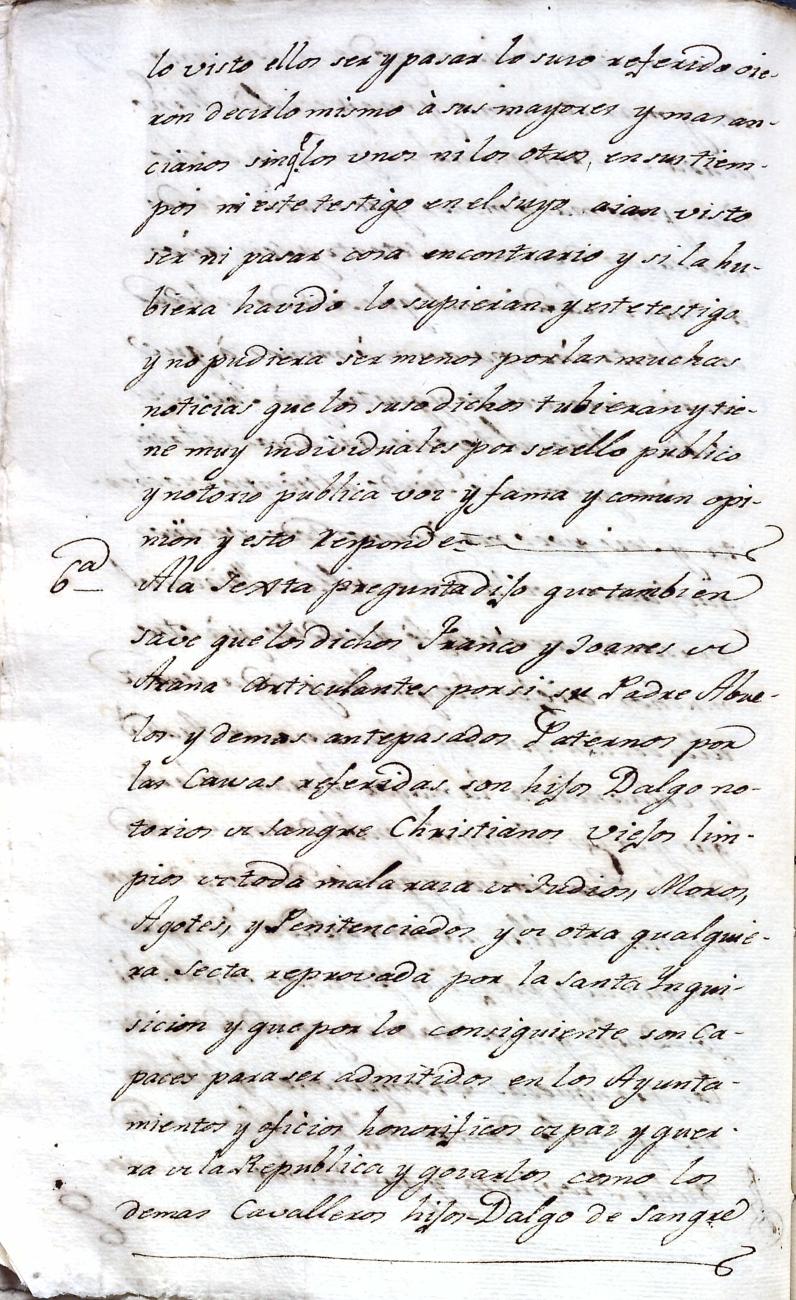 lo visto ellos ser y pasar lo suso referido oie-
ron decir lo mismo à sus mayores y mas an-
cianos sin q̃ los vnos ni los otros, en sus tiem-
pos ni este testigo en el suyo aian visto
ser ni pasar cosa en contrario y si la hu-
biera havido lo supieran y este testigo
y no pudiera ser menos por las muchas
noticias que los suso dichos tubieran y tie-
ne muy individuales por ser ello publico
y notorio publica voz y fama y comun opi-
nion y esto Responde
6ª
A la Sexta pregunta dijo que tambien
save que los dichos Franco y Joanes de
Arana articulantes por si su Padre Abue-
los y demas antepasados Paternos por
las Causas referidas son hijos Dalgo no-
torios de sangre Christianos viejos lim-
pios de toda mala raza de Judios, Moros,
Agotes, y Penitenciados y de otra qualquie-
ra secta reprovada por la santa Ynqui-
sicion y que por lo consiguiente son Ca-
paces para ser admitidos en los Ayunta-
mientos y oficios honorificos de paz y guer-
ra de la Republica y gozarlos como los
demas Cavalleros hijos-Dalgo de sangre